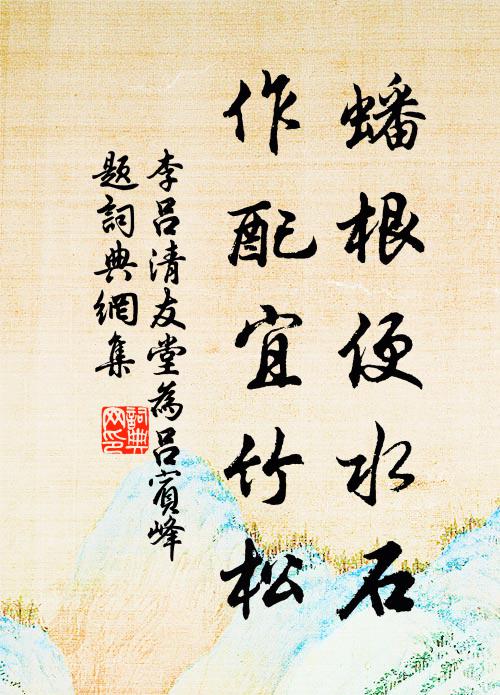 蟠根便水石
作配宜竹松
李吕清友堂為吕賓峰
題詞典網集
詞典网印